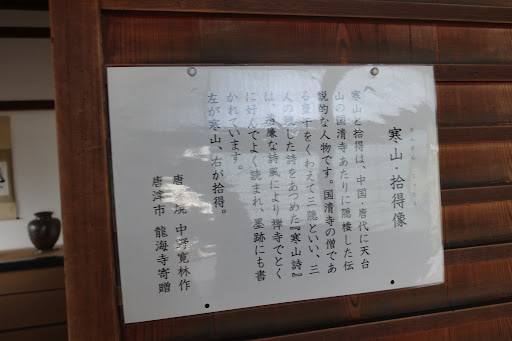 寒山・拾得像
寒山と拾得は、中国・唐代に天台
山の国清寺あたりに隠棲した伝
説的な人物です。国清寺の僧であ
る豊干をくわえて三隠といい、三
人の残した詩をあつめた『寒山詩』
は、風により禅寺でとく
に好んでよく読まれ、墨跡にも書
かれています。
左が寒山、右が拾得。
唐 焼 中野寛林作
唐津市 龍海寺寄贈